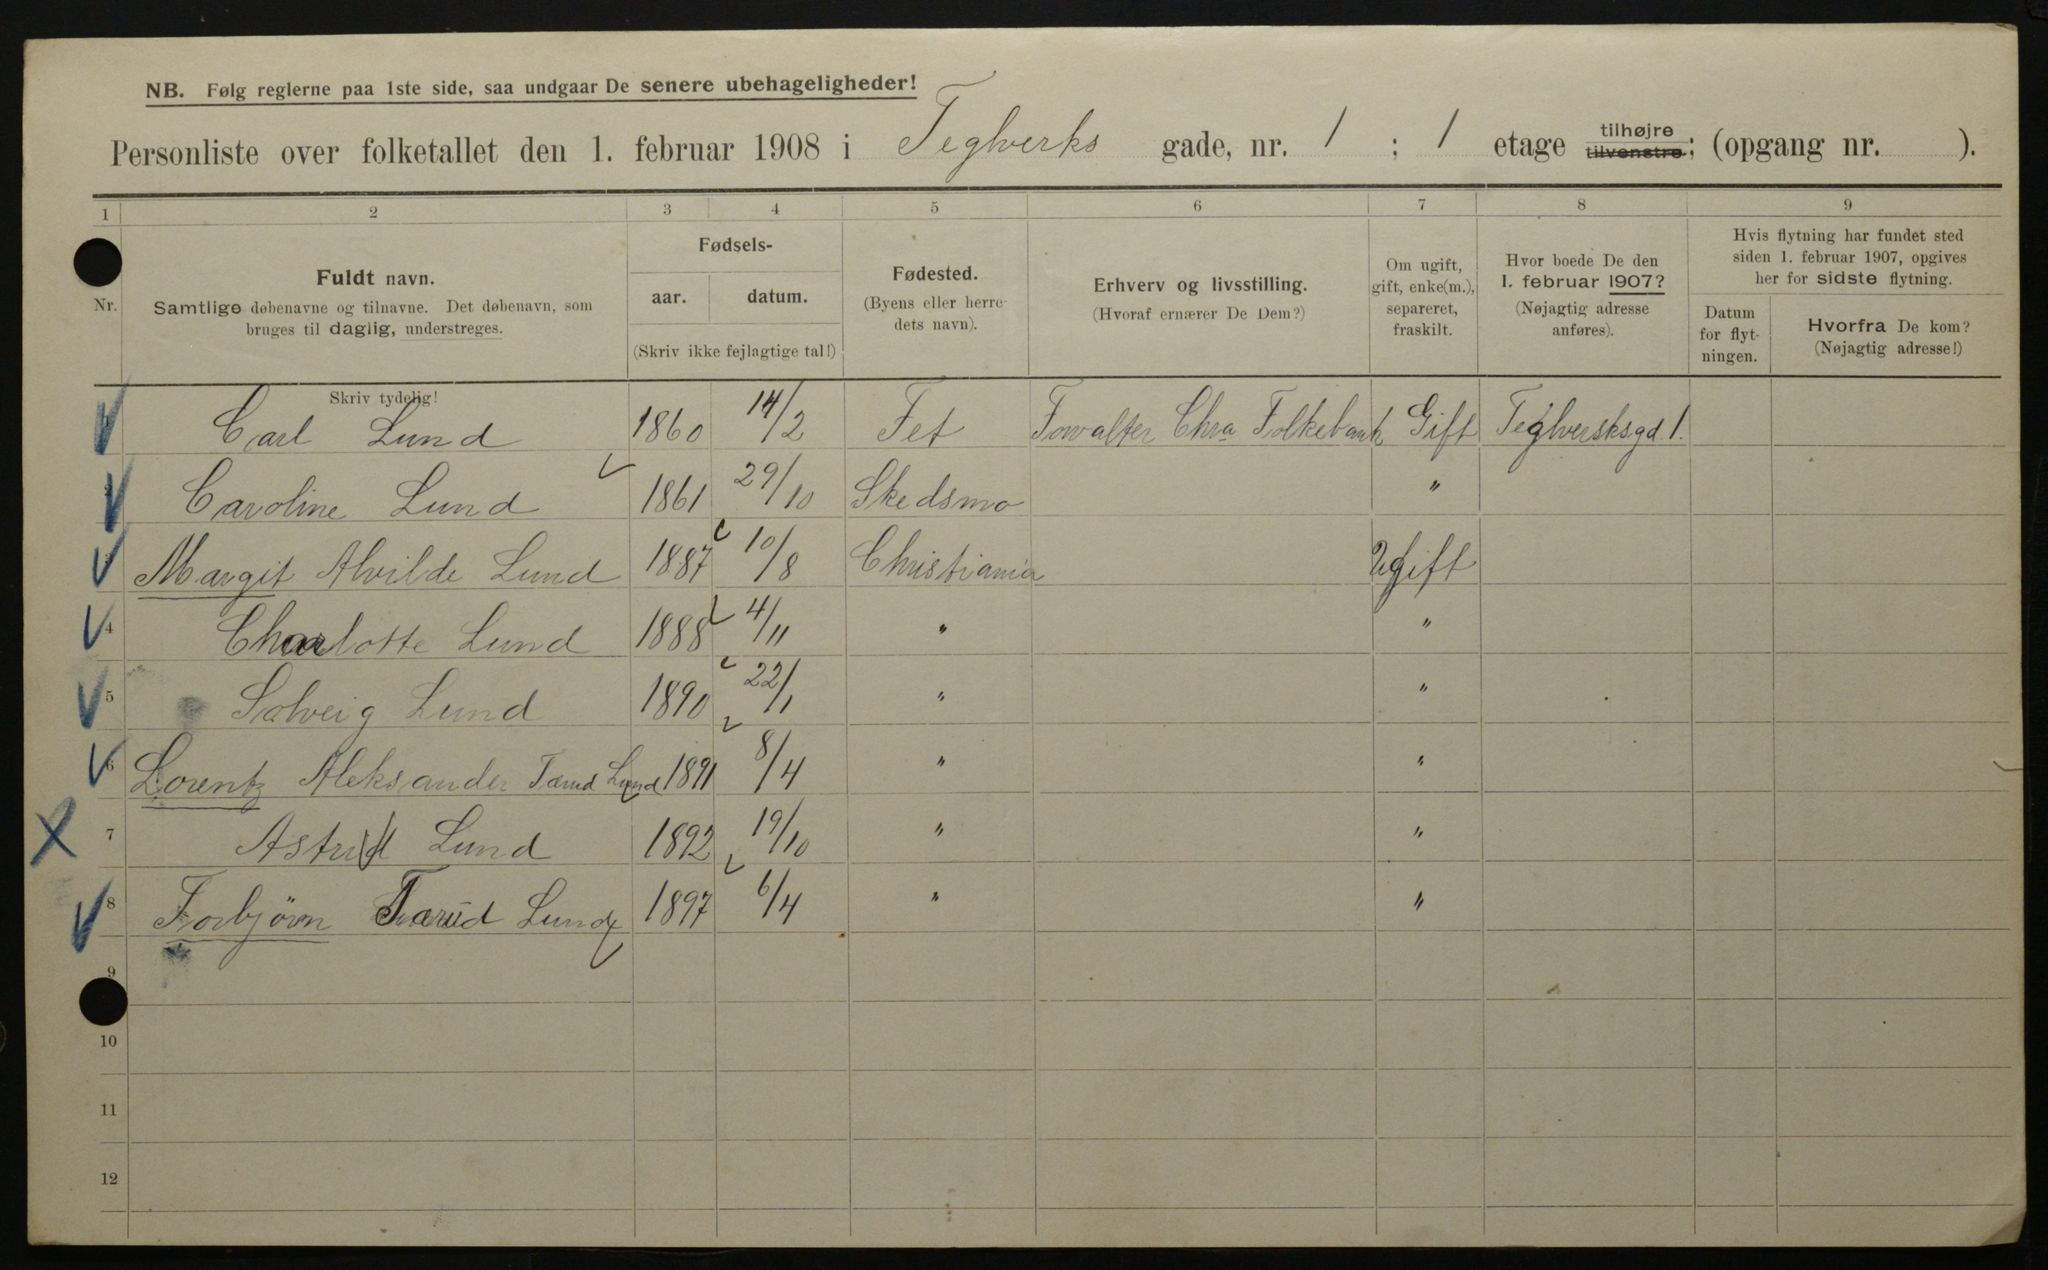 NB. Følg reglerne paa 1ste side, saa undgaar De senere ubehageligheder!
Personliste over folketallet den 1. februar 1908 i Teglverks gade, nr. 1 ; 1 etage tilhøjre tilvenstre; (opgang nr. ).
1 2 3 4 5 6 7 8 9
Nr.
Fuldt navn.
Samtlige døbenavne og tilnavne. Det døbenavn, som
bruges til daglig, understreges.
Skriv tydelig!
Fødsels-
aar. datum.
(Skriv ikke fejlagtige tal!)
Fødested.
(Byens eller herre-
dets navn).
Erhverv og livsstilling.
(Hvoraf ernærer De Dem?)
Om ugift,
gift, enke(m.),
separeret,
fraskilt.
Hvor boede De den
1. februar 1907?
(Nøjagtig adresse
anføres).
Hvis flytning har fundet sted
siden 1. februar 1907, opgives
her for sidste flytning.
Datum
for flyt-
ningen.
Hvorfra De kom?
(Nøjagtig adresse!)
1 Carl Lund 1860 14/2 Fet Forvalter Chra Folkebank Gift Teglverksgd 1.
2 Caroline Lund 1861 29/10 Skedsmo "
3 Margit Alvilde Lund 1887 10/8 Christiania Ugift
4 Charlotte Lund 1888 4/11 " "
5 Solveig Lund 1890 22/1 " "
6 Lorentz Aleksander Tærud Lund 1891 8/4 " "
7 Astrid Lund 1892 19/10 " "
8 Torbjörn Tærud Lund 1897 6/4 " "
9
10
11
12